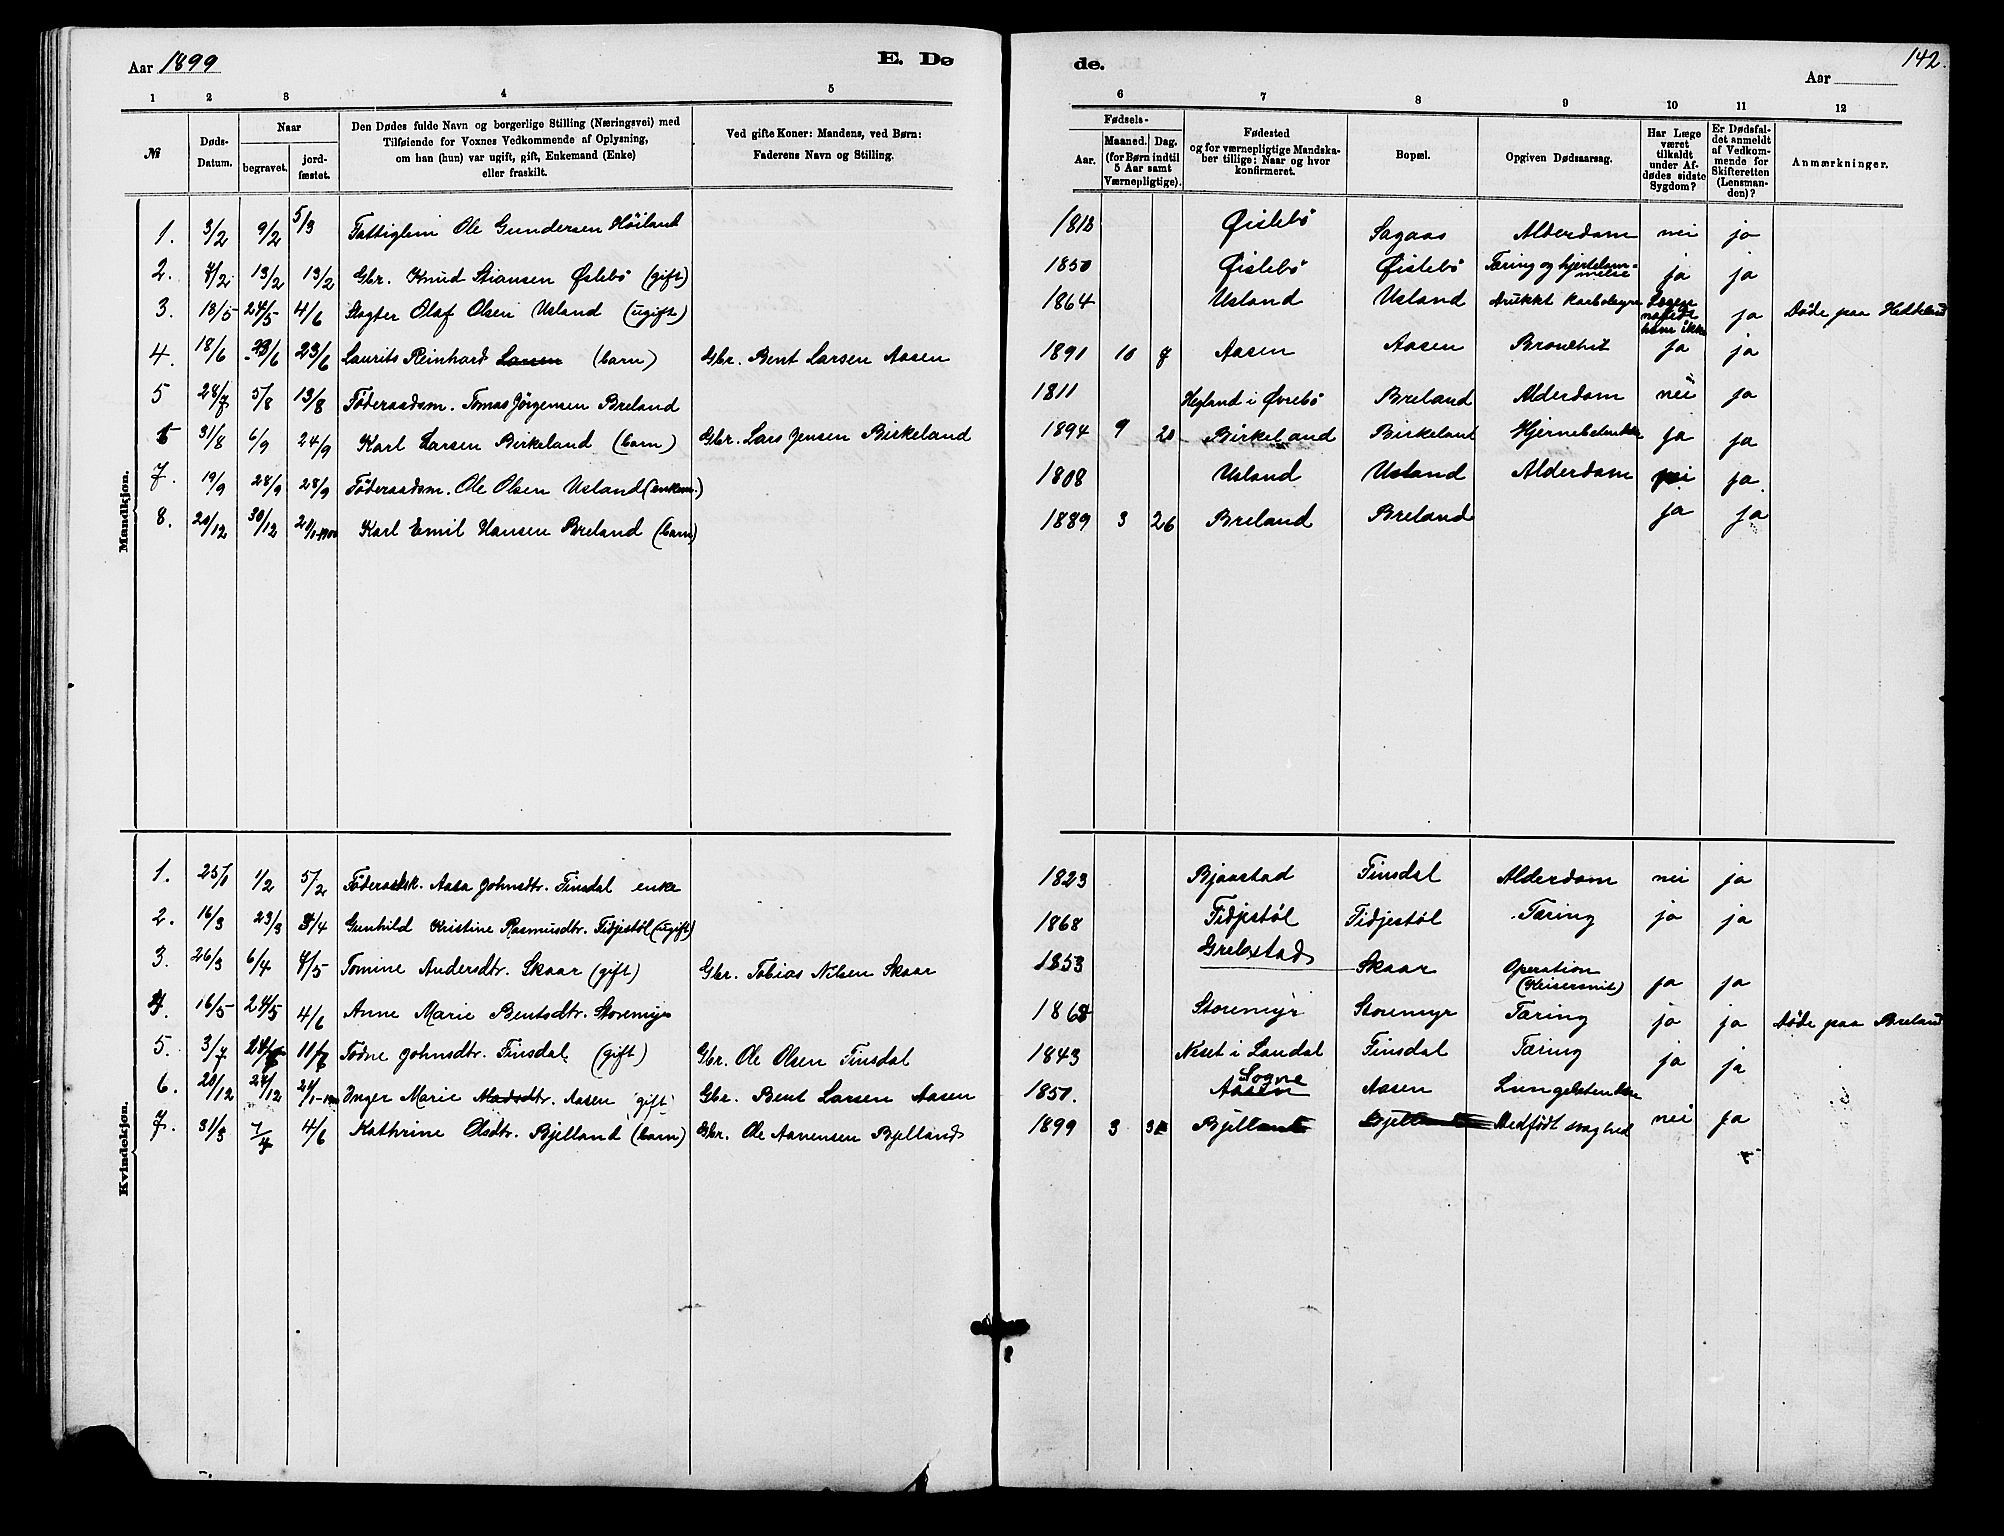 Aar 1899 E. Dø
de. Aar 142.
1 2 3 4 5 6 7 8 9 10 11 12
№
Døds-
Datum.
Naar
begravet.
jord-
fæstet.
Den Dødes fulde Navn og borgerlige Stilling (Næringsvei) med
Tilføiende for Voxnes Vedkommende af Oplysning,
om han (hun) var ugift, gift, Enkemand (Enke)
eller fraskilt.
Ved gifte Koner: Mandens, ved Børn:
Faderens Navn og Stilling.
Fødsels-
Aar.
Maaned. Dag.
(for Børn indtil
5 Aar samt
Værnepligtige).
Fødested
og for værnepligtige Mandska-
ber tillige: Naar og hvor
konfirmeret.
Bopæl.
Opgiven Dødsaarsag.
Har Læge
været
tilkaldt
under Af-
dødes sidste
Sygdom?
Er Dødsfal-
det anmeldt
af Vedkom-
mende for
Skifteretten
(Lensman-
den)?
Anmærkninger.
Mandkjøn.
1. 3/2 9/2 5/3 Fattiglem Ole Gundersen Höiland Øislebö Sagaas Alderdom nei ja
2. 7/2 13/2 13/2 Gbr. Knud Stiansen Øslebö (gift) 1850 Øislebö Øislebö Tæring og ja ja
3. 13/5 24/5 4/6 Olaf Olsen Usland (ugift) 1864 Usland Usland drukket ja Döde paa
4. 18/6 23/6 23/6 Laurits Reinhard (barn) Gbr. Bent Larsen Aasen 1891 10 7 Aasen Aasen ja ja
5 28/7 5/8 13/8 Föderaadsm. Tomas Jörgensen Breland 1811 i Øvrebö Breland Alderdom nei ja
6 31/8 6/9 24/9 Karl Larsen Birkeland (barn) Gbr. Lars Jensen Birkeland 1894 9 20 Birkeland Birkeland ja ja
7. 19/9 28/9 28/9 Föderaadsm. Ole Olsen Usland (enkem.) 1808 Usland Usland Alderdom nei ja.
8. 20/12 30/12 21/1-1900 Karl Emil Hansen Breland (barn) 1889 3 26 Breland Breland ja ja
Kvindekjøn.
1. 25/1 1/2 5/2 Aasa Johnsdtr. Finsdal enke 1823 Bjaastad Finsdal Alderdom nei ja
2. 16/3 23/3 3/4 Gunhild Kristine Rasmusdtr. Fidjestöl (ugift) 1868 Fidjestöl Fidjestöl Tæring ja ja
3. 26/3 6/4 7/5 Tomine Andersdtr. Skaar (gift) Gbr. Tobias Nilsen Skaar 1853 Skaar Operation
(Keisersnit) ja ja
4. 16/5 24/5 4/6 Anne Marie Bentsdtr. Storemyr Storemyr Storemyr Tæring ja ja Döde paa Breland
5. 3/7 11/7 Todne Johnsdtr. Finsdal (gift) Gbr. Ole Olsen Finsdal 1843 Neset i Laudal Finsdal Tæring ja ja
6. 20/12 27/12 21/1-1900 Inger Marie Aasen (gift) Gbr. Bent Larsen Aasen Sogne
Aasen Aasen Lungebetendelse
7. 31/3 7/4 4/6 Kathrine Olsdtr. Bjelland (barn) Gbr. Ole Aanensen Bjelland 1899 3 Bjelland Bjelland Medfödt svaghed nei ja